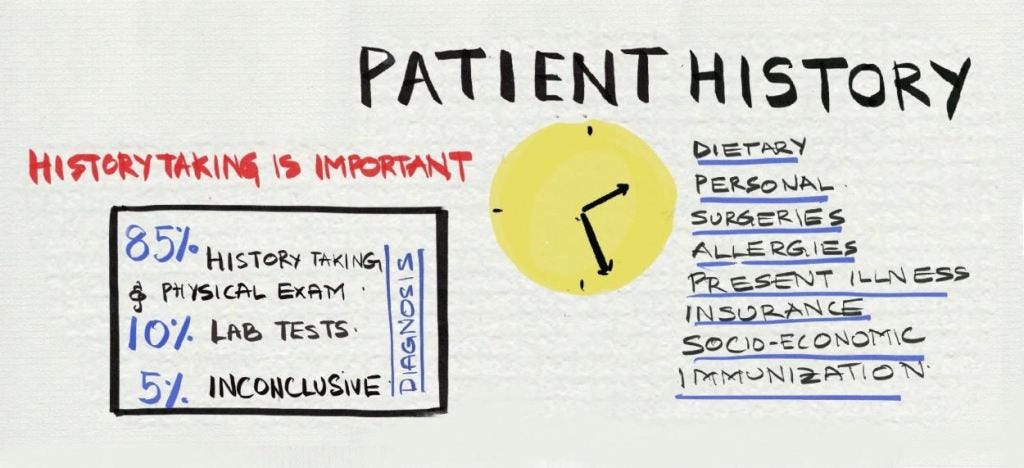 PATIENT HISTORY
HISTORY TAKING IS IMPORTANT
85% HISTORY TAKING
& PHYSICAL EXAM
10% LAB TESTS.
5% INCONCLUSIVE
DIAGNOSIS
DIETARY
PERSONAL.
SURGERIES
ALLERGIES
PRESENT ILLNESS
INSURANCE
SOCIO-ECONOMIC
IMMUNIZATION.